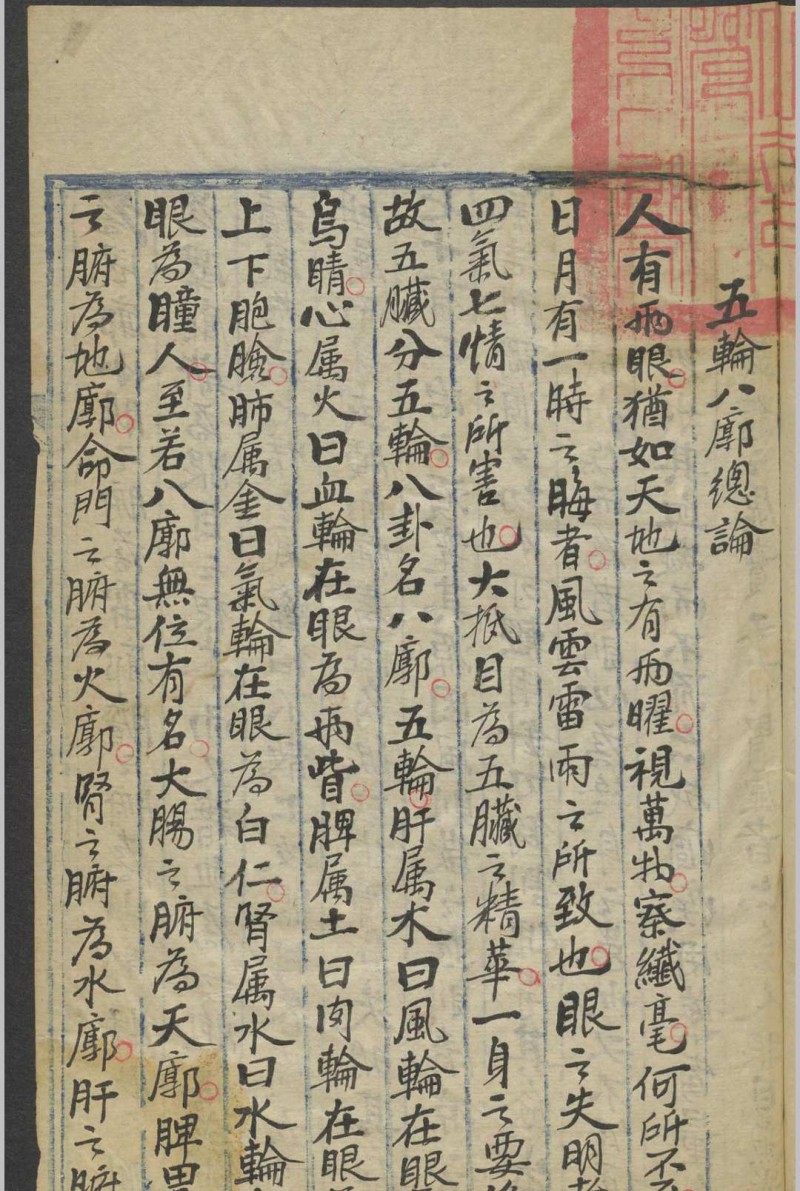 五輪八廓總論
人有兩眼猶如天地之有兩曜視萬物察纖毫何所不
日月有一時之晦者風雲雷雨之所致也眼之失明
四氣七情之所害也大抵目為五臟之精華一身之要
故五臟分五輪八卦名八廓五輪肝属木曰風輪在眼
烏睛心属火曰血輪在眼為兩眥脾属土曰肉輪在眼
上下胞瞼肺属金曰氣輪在眼為白仁腎属水曰水輪
眼為瞳人至若八廓無位有名大腸之腑為天廓脾胃
之腑為地廓命門之腑為火廓腎之腑為水廓肝之腑